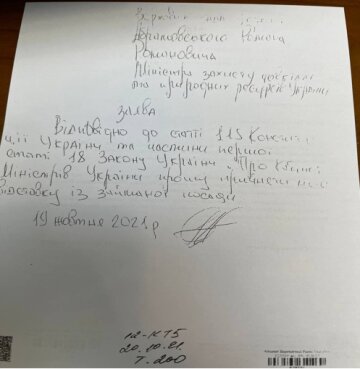 Абрамовського Романа
Романовича
Міністра захисту довкілля
та природних ресурсів України
ЗАЯВА
Відповідно до статті 115 Консти
ції України та частини першої
статті 18 Закону України "Про Кабінет
Міністрів України прошу прийняти мою
відставку із займаної посади
19 жовтня 2021 р
12-КТ5
20.10.21
Т.200